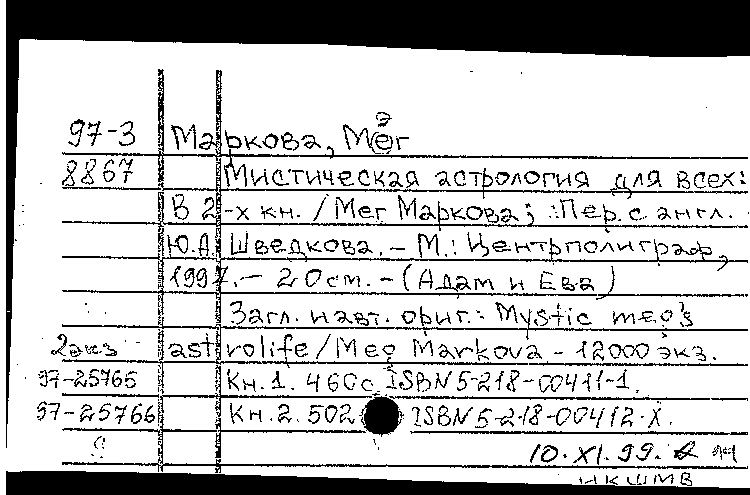 97-3 Маркова, Мэг
8867 Мистическая астрология для всех:
В 2-х кн. / Мег Маркова; :Пер. с англ.
Ю.А. Шведкова. - М.: Центрполиграф,
1997. - 20см. - (Адам и Ева)
Загл. и авт. ориг.: Mystic meg's
2экз astrolife / Meg Markova - 12000 экз.
97-25765 Кн. 1. 460с. ISBN 5-218-00411-1.
97-25766 Кн. 2. 502 ISBN 5-218-00412-X.
10.XI.99.